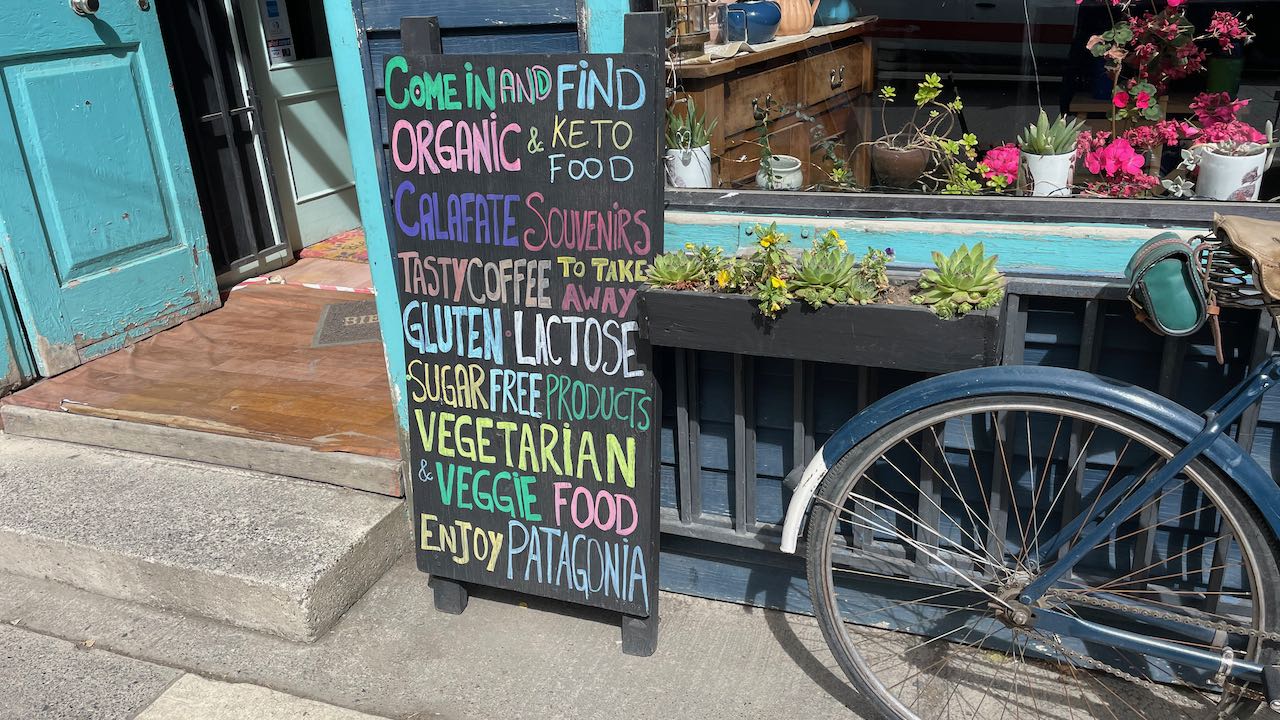 COME IN AND FIND
ORGANIC & KETO
FOOD
CALAFATE SOUVENIRS
TASTY COFFEE TO TAKE
AWAY
GLUTEN · LACTOSE
SUGAR FREE PRODUCTS
VEGETARIAN
& VEGGIE FOOD
ENJOY PATAGONIA
BIE